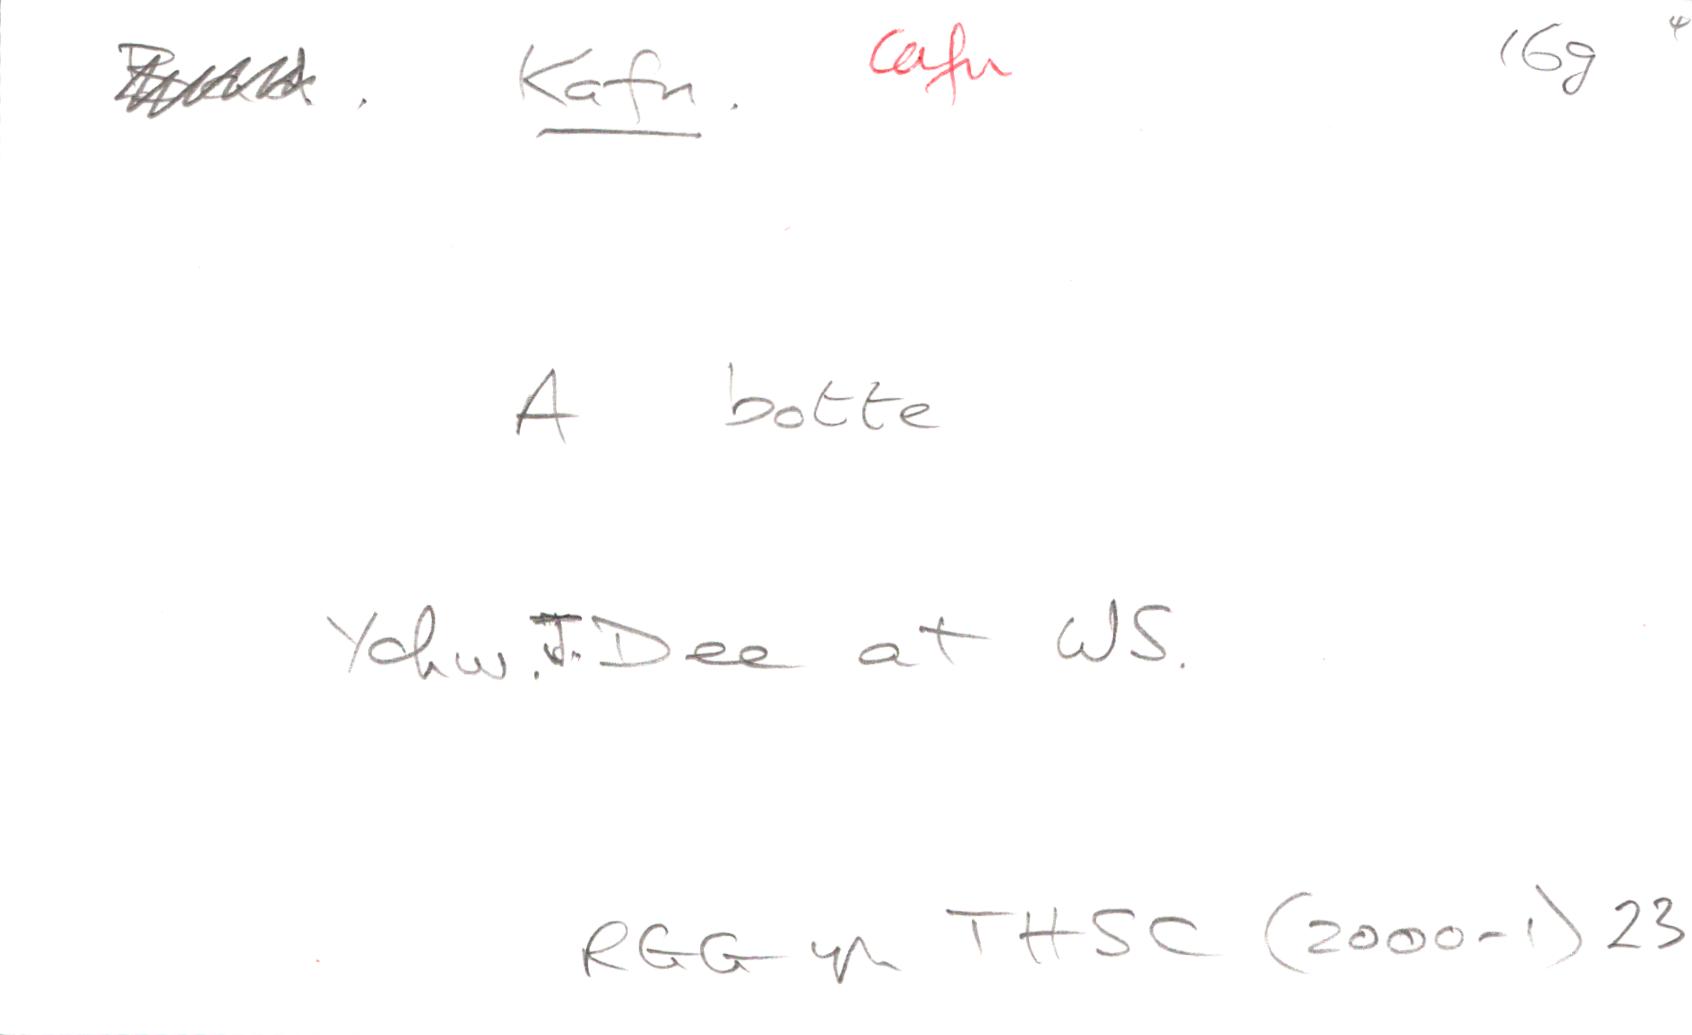 Kafn. cafn 16g 4
A botte
Ychw. J. Dee at WS.
RGG yn THSC (2000-1) 23